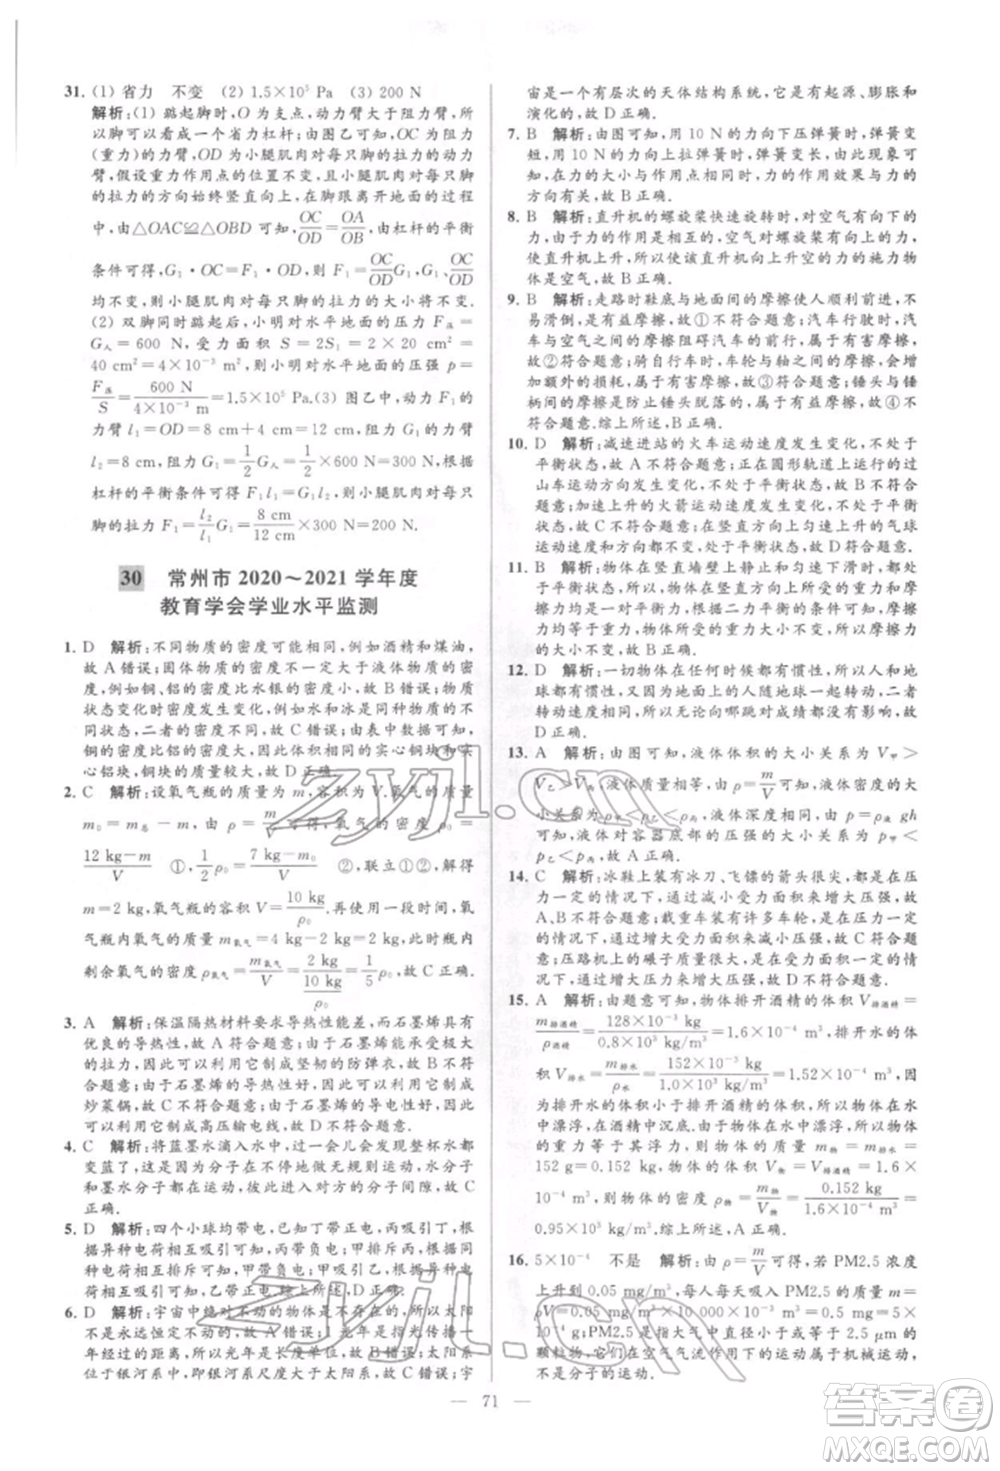 31. (1) 省力 不变 (2) 1.5×10⁵ Pa (3) 200 N
解析:(1) 踮起脚时,O为支点,动力臂大于阻力臂,
我们的脚是一个省力杠杆;由图乙可知 OC 为阻力
(重力)的力臂,OD 为小腿肌肉对每只脚的拉力的动力
臂,假设重力作用点的位置不变,小腿肌肉对每只脚
的拉力的方向始终竖直向上,在脚跟离开地面的过程
中,由△OAC≌△OBD 可知,OC/OD=OA/OB,由杠杆的平衡
条件可得,G₁·OC=F₁·OD,即 F₁=OC/OD G₁,OC/OD
不变,则小腿肌肉对每只脚的拉力的大小不变.
(2) 双脚同时踮起后,对水平地面的压力 F压=
G人=600 N,受力面积 S=2S₁=2×20
cm²=4×10⁻³ m²,对水平地面的压强 p=
F压/S=600 N/4×10⁻³ m=1.5×10⁵ Pa.(3) 图乙中,动力 F₁的
力臂 l₁=OD=8 cm+4 cm=12 cm,阻力臂
l₂=8 cm,阻力 G₁=1/2G人=1/2×600 N=300 N,根据
杠杆的平衡条件可得 F₁l₁=G₁l₂,则小腿肌肉对每只
脚的拉力 F₁=l₂/l₁ G₁=8 cm/12 cm×300 N=200 N.
30 常州市 2020～2021 学年度
教育学会学业水平监测
1. D 解析:不同物质的密度可能相同,例如酒精和煤油,
故 A 错误;固体物质的密度不一定大于液体物质的密
度,例如铜、铝的密度比水银的密度小,故 B 错误;物质
状态变化时密度发生变化,例如水和冰是同种物质的
不同状态,二者的密度不同,故 C 错误;由表中数据可知,
铜的密度比铝的密度大,故相同体积的实心铜块和实
心铝块,铜块的质量较大,故 D 正确.
2. C 解析:设氧气瓶的质量为 m,氧气的质量
m₀=m总-m,由 ρ=m/V 可得,ρ=m₀/V=
12 kg-m/V ①,1/2ρ₀=7 kg-m₀/V ②,联立①②,解得
m=2 kg,氧气瓶的容积 V=10 kg/ρ₀.再使用一段时间,氧
气瓶内氧气的质量 m氧气=4 kg-2 kg=2 kg,此时瓶内
剩余氧气的密度 ρ氧气=m氧气/V=2 kg/10 kg/ρ₀=0.2ρ₀,故 C 正确.
3. A 解析:保温隔热材料要求导热性能差,而石墨烯具有
优良的导热性能,故 A 符合题意;由于石墨烯具有极大的
抗拉力,所以可以利用它制成坚韧的防弹衣,故 B 不符合
题意;由于石墨烯的导热性好,所以可以利用它制成
炒菜锅,故 C 不符合题意;由于石墨烯的导电性好,所以
可以利用它制成高压输电线,故 D 不符合题意.
4. C 解析:将蓝墨水滴入水中,过一会儿会发现整杯水都
变蓝了,这是因为分子在永不停息地无规则运动,水分子
和墨水分子都在运动,彼此进入对方的分子间隙,故 C
正确.
5. D 解析:四个小球均带电,丙和丁带负电,丙吸引丁,根
据异种电荷相互吸引可知,丙带正电;甲吸引丙,根据异种
电荷相互吸引可知,甲带负电;甲、乙相互吸引,根据异种
电荷相互吸引可知,乙带正电,故 D 正确.
6. D 解析:宇宙中绝对不动的物体是不存在的,所以太阳
不是永远恒定不动的,故 A 错误;光年是光一年传播
的距离,所以光年是长度单位,故 B 错误;太阳系在银河系
中,即银河系尺度大于太阳系,故 C 错误;宇
宙是一个有层次的天体结构系统,它是有起源、膨胀和
演化的,故 D 正确.
7. B 解析:由图可知,用 10 N 的力向下压弹簧时,弹簧变
短,用 10 N 的力向上拉弹簧时,弹簧变长,由此现象可
知,在力的大小与作用点相同时,力的作用效果与力的
方向有关,故 B 正确.
8. B 解析:直升机的螺旋桨快速旋转时,对空气有向下的
力,由于力的作用是相互的,空气对螺旋桨有向上的力,
使直升机上升,所以使直升机上升的力的施力物
体是空气,故 B 正确.
9. B 解析:走路时鞋底与地面间的摩擦使人顺利前进,不
易滑倒,是有益摩擦,故①不符合题意;汽车行驶时,汽车
与空气之间的摩擦阻碍汽车的运动,属于有害摩擦,
故②符合题意;骑自行车时,车轮与轴之间的摩擦,会增
加额外的损耗,属于有害摩擦,故③符合题意;锤头与锤
柄间的摩擦是防止锤头脱落的,属于有益摩擦,故④不
符合题意.综上所述,B 正确.
10. D 解析:减速进站的火车运动速度发生变化,不处于
平衡状态,故 A 不符合题意;正在圆形轨道上运动的过
山车运动方向发生变化,不处于平衡状态,故 B 不符合
题意;加速上升的火箭运动速度发生变化,不处于平衡
状态,故 C 不符合题意;在竖直方向上匀速上升的气球
运动状态不变,处于平衡状态,故 D 符合题意.
11. B 解析:因为物体在竖直墙壁上匀速下滑,所以竖直
方向上受力平衡,摩擦力与重力是一对平衡力,根据二力平衡
可知,物体所受的重力大小等于物体受到的摩擦力
的大小不变,故 B 正确.
12. D 解析:一切物体在任何时候都有惯性,所以人和地
球都有惯性,跳起来的人随地球一起转动,二者
转动速度相同,所以无论向哪跳对成绩都没有影响,
故 D 正确.
13. A 解析:由图可知,液体体积的大小关系为 V甲>
V乙>V丙,液体质量相等,由 ρ=m/V 可知,液体密度的大
小关系为 ρ甲<ρ乙<ρ丙,液体深度相同,由 p=ρ液gh
可知,液体对容器底部的压强的大小关系为 p甲<
p乙<p丙,故 A 正确.
14. C 解析:冰鞋上装有冰刀、飞镖的箭头很尖,都是在压
力一定的情况下,通过减小受力面积来增大压强,故
A、B 不符合题意;载重车装有许多车轮,是在压力一定
的情况下,通过增大受力面积来减小压强,故 C 符合
题意;压路机的碾子质量很大,是在受力面积一定时,
通过增大压力来增大压强,故 D 不符合题意.
15. A 解析:由题意可知,物体排开酒精的体积 V排酒精=
m排酒精/ρ酒精=128×10⁻³ kg/0.8×10³ kg/m³=1.6×10⁻⁴ m³,排开水的体
积 V排水=m排水/ρ水=152×10⁻³ kg/1.0×10³ kg/m³=1.52×10⁻⁴ m³,
因为排开水的体积小于排开酒精的体积,所以物体在水
中漂浮,在酒精中沉底.由于物体在水中漂浮,所以物体
的重力等于其浮力,则物体的质量 m物=m排水=
152 g=0.152 kg,物体的体积 V物=V排酒精=1.6×
10⁻⁴ m³,则物体的密度 ρ物=m物/V物=0.152 kg/1.6×10⁻⁴ m³=
0.95×10³ kg/m³.综上所述,A 正确.
16. 5×10⁻⁴ 不是 解析:由 ρ=m/V 可得,若 PM2.5 浓度
上升到 0.05 mg/m³,每人每天吸入 PM2.5 的质量 m=
ρV=0.05 mg/m³×10 000×10⁻³ m³=0.5 mg=
5×10⁻⁴ g;PM2.5 是指大气中直径小于或等于 2.5 μm 的
颗粒物,它在空气气流作用下的运动属于机械运动,
不是分子的运动.
— 71 —
zyjl.cn
zyjl.cn
答案圈
MXQE.COM